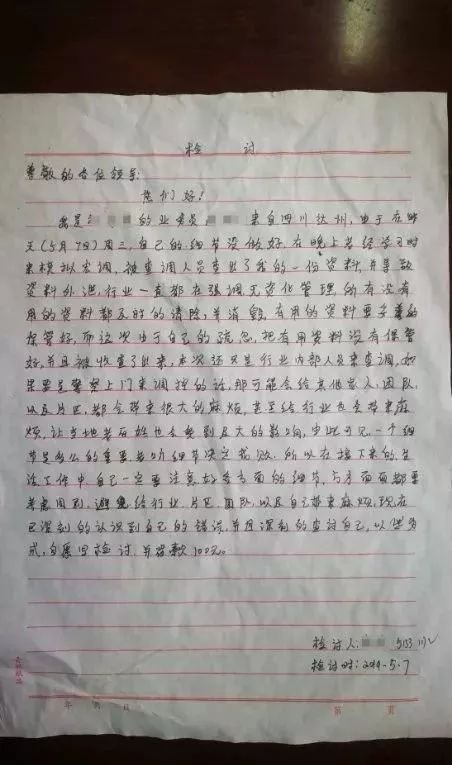 检 讨
尊敬的各位领导:
您们好!
我是 的业务员 来自四川达州,由于在昨
天(5月7日)周三,自己的细节没做好,在晚上学习时
来模拟发调,被查调人员查出了我的一份资料,并导致
资料外泄,行业一直都在强调无资化管理,所有没有
用的资料都及时的清除,并消毁,有用的资料要妥善的
保管好,而这次由于自己的疏忽,把有用资料没有保管
好,并且被收查了出来,本次还只是行业内部人员来查调,如
果要是警察上门来调控的话,那可能会给其他家人团队,
以及片区,都会带来很大的麻烦,甚至给行业也会带来麻
烦,让当地老百姓也会受到巨大的影响,由此可见,一个细
节是多么的重要,细节决定成败,所以在接下来的生
活工作中自己一定要注意好各方面的细节,方方面面都要
考虑周到,避免给行业,片区,团队,以及自己带来麻烦,现在
已深刻的认识到自己的错误,并且深刻的检讨自己,以儆效
尤,自愿写检讨 并罚款100元。
检讨人:
检讨时: 5.7
年 月 日
第 页